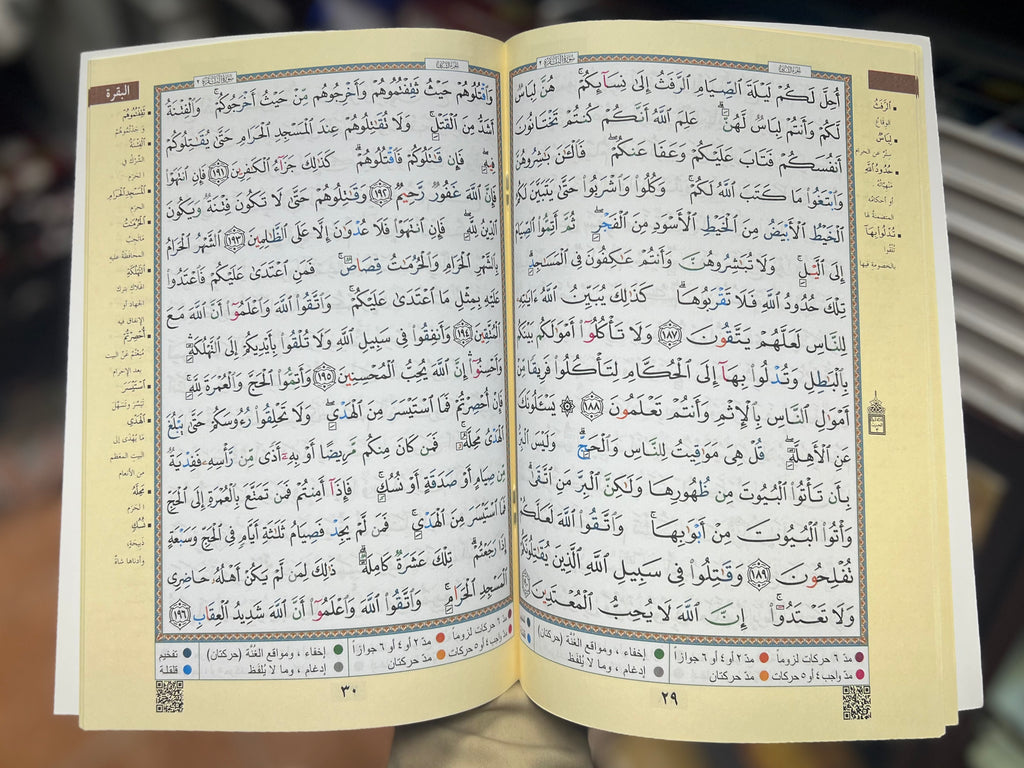 البقرة
سورة البقرة ٢
أُحِلَّ لَكُمْ لَيْلَةَ ٱلصِّيَامِ ٱلرَّفَثُ إِلَىٰ نِسَآئِكُمْ ۚ هُنَّ لِبَاسٌ
لَّكُمْ وَأَنتُمْ لِبَاسٌ لَّهُنَّ ۗ عَلِمَ ٱللَّهُ أَنَّكُمْ كُنتُمْ تَخْتَانُونَ
أَنفُسَكُمْ فَتَابَ عَلَيْكُمْ وَعَفَا عَنكُمْ ۖ فَٱلْـَٰٔنَ بَـٰشِرُوهُنَّ
وَٱبْتَغُوا۟ مَا كَتَبَ ٱللَّهُ لَكُمْ ۚ وَكُلُوا۟ وَٱشْرَبُوا۟ حَتَّىٰ يَتَبَيَّنَ لَكُمُ
ٱلْخَيْطُ ٱلْأَبْيَضُ مِنَ ٱلْخَيْطِ ٱلْأَسْوَدِ مِنَ ٱلْفَجْرِ ۖ ثُمَّ أَتِمُّوا۟ ٱلصِّيَامَ
إِلَى ٱلَّيْلِ ۚ وَلَا تُبَـٰشِرُوهُنَّ وَأَنتُمْ عَـٰكِفُونَ فِى ٱلْمَسَـٰجِدِ ۗ
تِلْكَ حُدُودُ ٱللَّهِ فَلَا تَقْرَبُوهَا ۗ كَذَٰلِكَ يُبَيِّنُ ٱللَّهُ ءَايَـٰتِهِۦ
لِلنَّاسِ لَعَلَّهُمْ يَتَّقُونَ ١٨٧ وَلَا تَأْكُلُوٓا۟ أَمْوَٰلَكُم بَيْنَكُم
بِٱلْبَـٰطِلِ وَتُدْلُوا۟ بِهَآ إِلَى ٱلْحُكَّامِ لِتَأْكُلُوا۟ فَرِيقًا مِّنْ
أَمْوَٰلِ ٱلنَّاسِ بِٱلْإِثْمِ وَأَنتُمْ تَعْلَمُونَ ١٨٨ ۞ يَسْـَٔلُونَكَ
عَنِ ٱلْأَهِلَّةِ ۖ قُلْ هِىَ مَوَٰقِيتُ لِلنَّاسِ وَٱلْحَجِّ ۗ وَلَيْسَ ٱلْبِرُّ
بِأَن تَأْتُوا۟ ٱلْبُيُوتَ مِن ظُهُورِهَا وَلَـٰكِنَّ ٱلْبِرَّ مَنِ ٱتَّقَىٰ ۗ
وَأْتُوا۟ ٱلْبُيُوتَ مِنْ أَبْوَٰبِهَا ۚ وَٱتَّقُوا۟ ٱللَّهَ لَعَلَّكُمْ
تُفْلِحُونَ ١٨٩ وَقَـٰتِلُوا۟ فِى سَبِيلِ ٱللَّهِ ٱلَّذِينَ يُقَـٰتِلُونَكُمْ
وَلَا تَعْتَدُوٓا۟ ۚ إِنَّ ٱللَّهَ لَا يُحِبُّ ٱلْمُعْتَدِينَ
ٱلرَّفَثُ
الوقاع
لِبَاسٌ
ستر عن الحرام
حُدُودُ ٱللَّهِ
منهياته
أو أحكامه
المتضمنة لها
تُدْلُوا۟ بِهَآ
تُلْقُوا
بالخصومة فيها
مدّ ٦ حركات لزوماً مدّ ٢ أو ٤ أو ٦ جوازاً إخفاء ، ومواقع الغُنَّة (حركتان)
مدّ واجب ٤ أو ٥ حركات مدّ حركتان إدغام ، وما لا يُلفَظ
٢٩
سورة البقرة ٢
وَٱقْتُلُوهُمْ حَيْثُ ثَقِفْتُمُوهُمْ وَأَخْرِجُوهُم مِّنْ حَيْثُ أَخْرَجُوكُمْ ۚ وَٱلْفِتْنَةُ
أَشَدُّ مِنَ ٱلْقَتْلِ ۚ وَلَا تُقَـٰتِلُوهُمْ عِندَ ٱلْمَسْجِدِ ٱلْحَرَامِ حَتَّىٰ يُقَـٰتِلُوكُمْ
فِيهِ ۖ فَإِن قَـٰتَلُوكُمْ فَٱقْتُلُوهُمْ ۗ كَذَٰلِكَ جَزَآءُ ٱلْكَـٰفِرِينَ ١٩١ فَإِنِ ٱنتَهَوْا۟
فَإِنَّ ٱللَّهَ غَفُورٌ رَّحِيمٌ ١٩٢ وَقَـٰتِلُوهُمْ حَتَّىٰ لَا تَكُونَ فِتْنَةٌ وَيَكُونَ
ٱلدِّينُ لِلَّهِ ۖ فَإِنِ ٱنتَهَوْا۟ فَلَا عُدْوَٰنَ إِلَّا عَلَى ٱلظَّـٰلِمِينَ ١٩٣ ٱلشَّهْرُ ٱلْحَرَامُ
بِٱلشَّهْرِ ٱلْحَرَامِ وَٱلْحُرُمَـٰتُ قِصَاصٌ ۚ فَمَنِ ٱعْتَدَىٰ عَلَيْكُمْ فَٱعْتَدُوا۟
عَلَيْهِ بِمِثْلِ مَا ٱعْتَدَىٰ عَلَيْكُمْ ۚ وَٱتَّقُوا۟ ٱللَّهَ وَٱعْلَمُوٓا۟ أَنَّ ٱللَّهَ مَعَ
ٱلْمُتَّقِينَ ١٩٤ وَأَنفِقُوا۟ فِى سَبِيلِ ٱللَّهِ وَلَا تُلْقُوا۟ بِأَيْدِيكُمْ إِلَى ٱلتَّهْلُكَةِ ۛ
وَأَحْسِنُوٓا۟ ۛ إِنَّ ٱللَّهَ يُحِبُّ ٱلْمُحْسِنِينَ ١٩٥ وَأَتِمُّوا۟ ٱلْحَجَّ وَٱلْعُمْرَةَ لِلَّهِ ۚ
فَإِنْ أُحْصِرْتُمْ فَمَا ٱسْتَيْسَرَ مِنَ ٱلْهَدْىِ ۖ وَلَا تَحْلِقُوا۟ رُءُوسَكُمْ حَتَّىٰ يَبْلُغَ
ٱلْهَدْىُ مَحِلَّهُۥ ۚ فَمَن كَانَ مِنكُم مَّرِيضًا أَوْ بِهِۦٓ أَذًى مِّن رَّأْسِهِۦ فَفِدْيَةٌ
مِّن صِيَامٍ أَوْ صَدَقَةٍ أَوْ نُسُكٍ ۚ فَإِذَآ أَمِنتُمْ فَمَن تَمَتَّعَ بِٱلْعُمْرَةِ إِلَى ٱلْحَجِّ
فَمَا ٱسْتَيْسَرَ مِنَ ٱلْهَدْىِ ۚ فَمَن لَّمْ يَجِدْ فَصِيَامُ ثَلَـٰثَةِ أَيَّامٍ فِى ٱلْحَجِّ وَسَبْعَةٍ
إِذَا رَجَعْتُمْ ۗ تِلْكَ عَشَرَةٌ كَامِلَةٌ ۗ ذَٰلِكَ لِمَن لَّمْ يَكُنْ أَهْلُهُۥ حَاضِرِى
ٱلْمَسْجِدِ ٱلْحَرَامِ ۚ وَٱتَّقُوا۟ ٱللَّهَ وَٱعْلَمُوٓا۟ أَنَّ ٱللَّهَ شَدِيدُ ٱلْعِقَابِ ١٩٦
ثَقِفْتُمُوهُمْ
وجدتموهم
ٱلْفِتْنَةُ
الشرك في
الحرم
ٱلْمَسْجِدِ ٱلْحَرَامِ
الحرم
ٱلْحُرُمَـٰتُ
ما تجب
المحافظة عليه
ٱلتَّهْلُكَةِ
الهلاك بترك
الجهاد أو
الإنفاق فيه
أُحْصِرْتُمْ
مُنعتم عن البيت
بعد الإحرام
ٱسْتَيْسَرَ
تيسّر وتسهّل
ٱلْهَدْىِ
ما يُهدى إلى
البيت المعظم
من الأنعام
مَحِلَّهُۥ
الحرم
نُسُكٍ
ذبيحة،
وأدناها شاةٌ
مدّ ٦ حركات لزوماً مدّ ٢ أو ٤ أو ٦ جوازاً إخفاء ، ومواقع الغُنَّة (حركتان) تفخيم
مدّ واجب ٤ أو ٥ حركات مدّ حركتان إدغام ، وما لا يُلفَظ قلقلة
٣٠